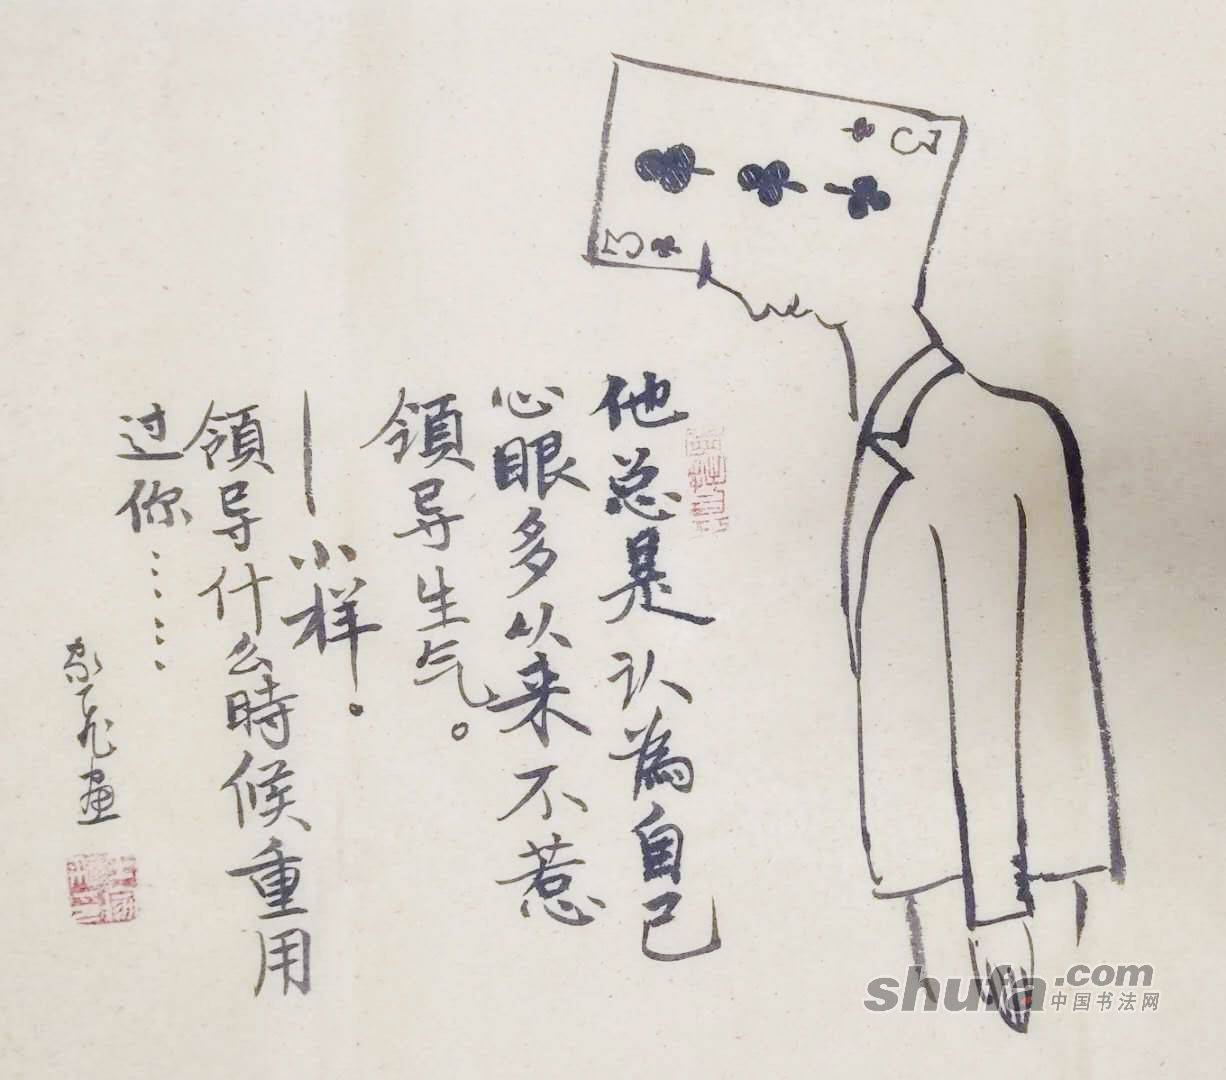 他总是认為自己
心眼多从来不惹
領导生气。
——小样.
領导什么時候重用
过你……
画
3
3
shufa.com
中国书法网